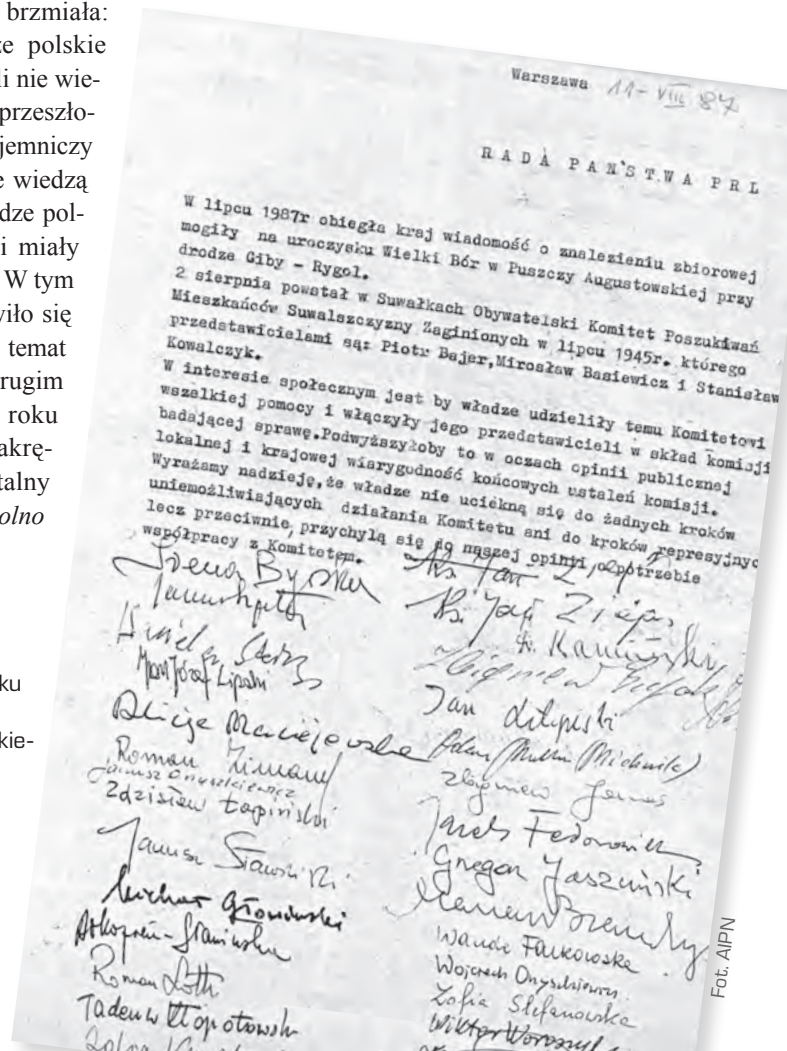 brzmiała:
że polskie
li nie wie-
przeszło-
jemniczy
e wiedzą
dze pol-
i miały
W tym
wiło się
temat
rugim
roku
akrę-
talny
olno
ku
kie-
Warszawa 11-VIII 87
RADA PAŃSTWA PRL
W lipcu 1987r obiegła kraj wiadomość o znalezieniu zbiorowej
mogiły na uroczysku Wielki Bór w Puszczy Augustowskiej przy
drodze Giby - Rygol.
2 sierpnia powstał w Suwałkach Obywatelski Komitet Poszukiwań
Mieszkańców Suwalszczyzny Zaginionych w lipcu 1945r. którego
przedstawicielami są: Piotr Bajer,Mirosław Basiewicz i Stanisław
Kowalczyk.
W interesie społecznym jest by władze udzieliły temu Komitetowi
wszelkiej pomocy i włączyły jego przedstawicieli w skład komisji
badającej sprawę.Podwyższyłoby to w oczach opinii publicznej
lokalnej i krajowej wiarygodność końcowych ustaleń komisji.
Wyrażamy nadzieję,że władze nie uciekną się do żadnych kroków
uniemożliwiających działania Komitetu ani do kroków represyjnyc
lecz przeciwnie, przychylą się do naszej opinii, o potrzebie
współpracy z Komitetem.
Jan Józef Lipski
Alicja Maciejowska
Roman Zimand
Janusz Onyszkiewicz
Zdzisław Łapiński
Janusz Sławiński
Michał Głowiński
Roman Loth
Tadeusz Kłopotowski
Ks. Jan
Ks. Jan Zieja
Kamiński
Zbigniew
Jan Lityński
Adam (Michnik)
Zbigniew Janas
Jacek Fedorowicz
Grzegorz Jaszuński
Marian Brandys
Wanda Falkowska
Wojciech Onyszkiewicz
Zofia Stefanowska
Wiktor Woroszyl
Fot. AIPN